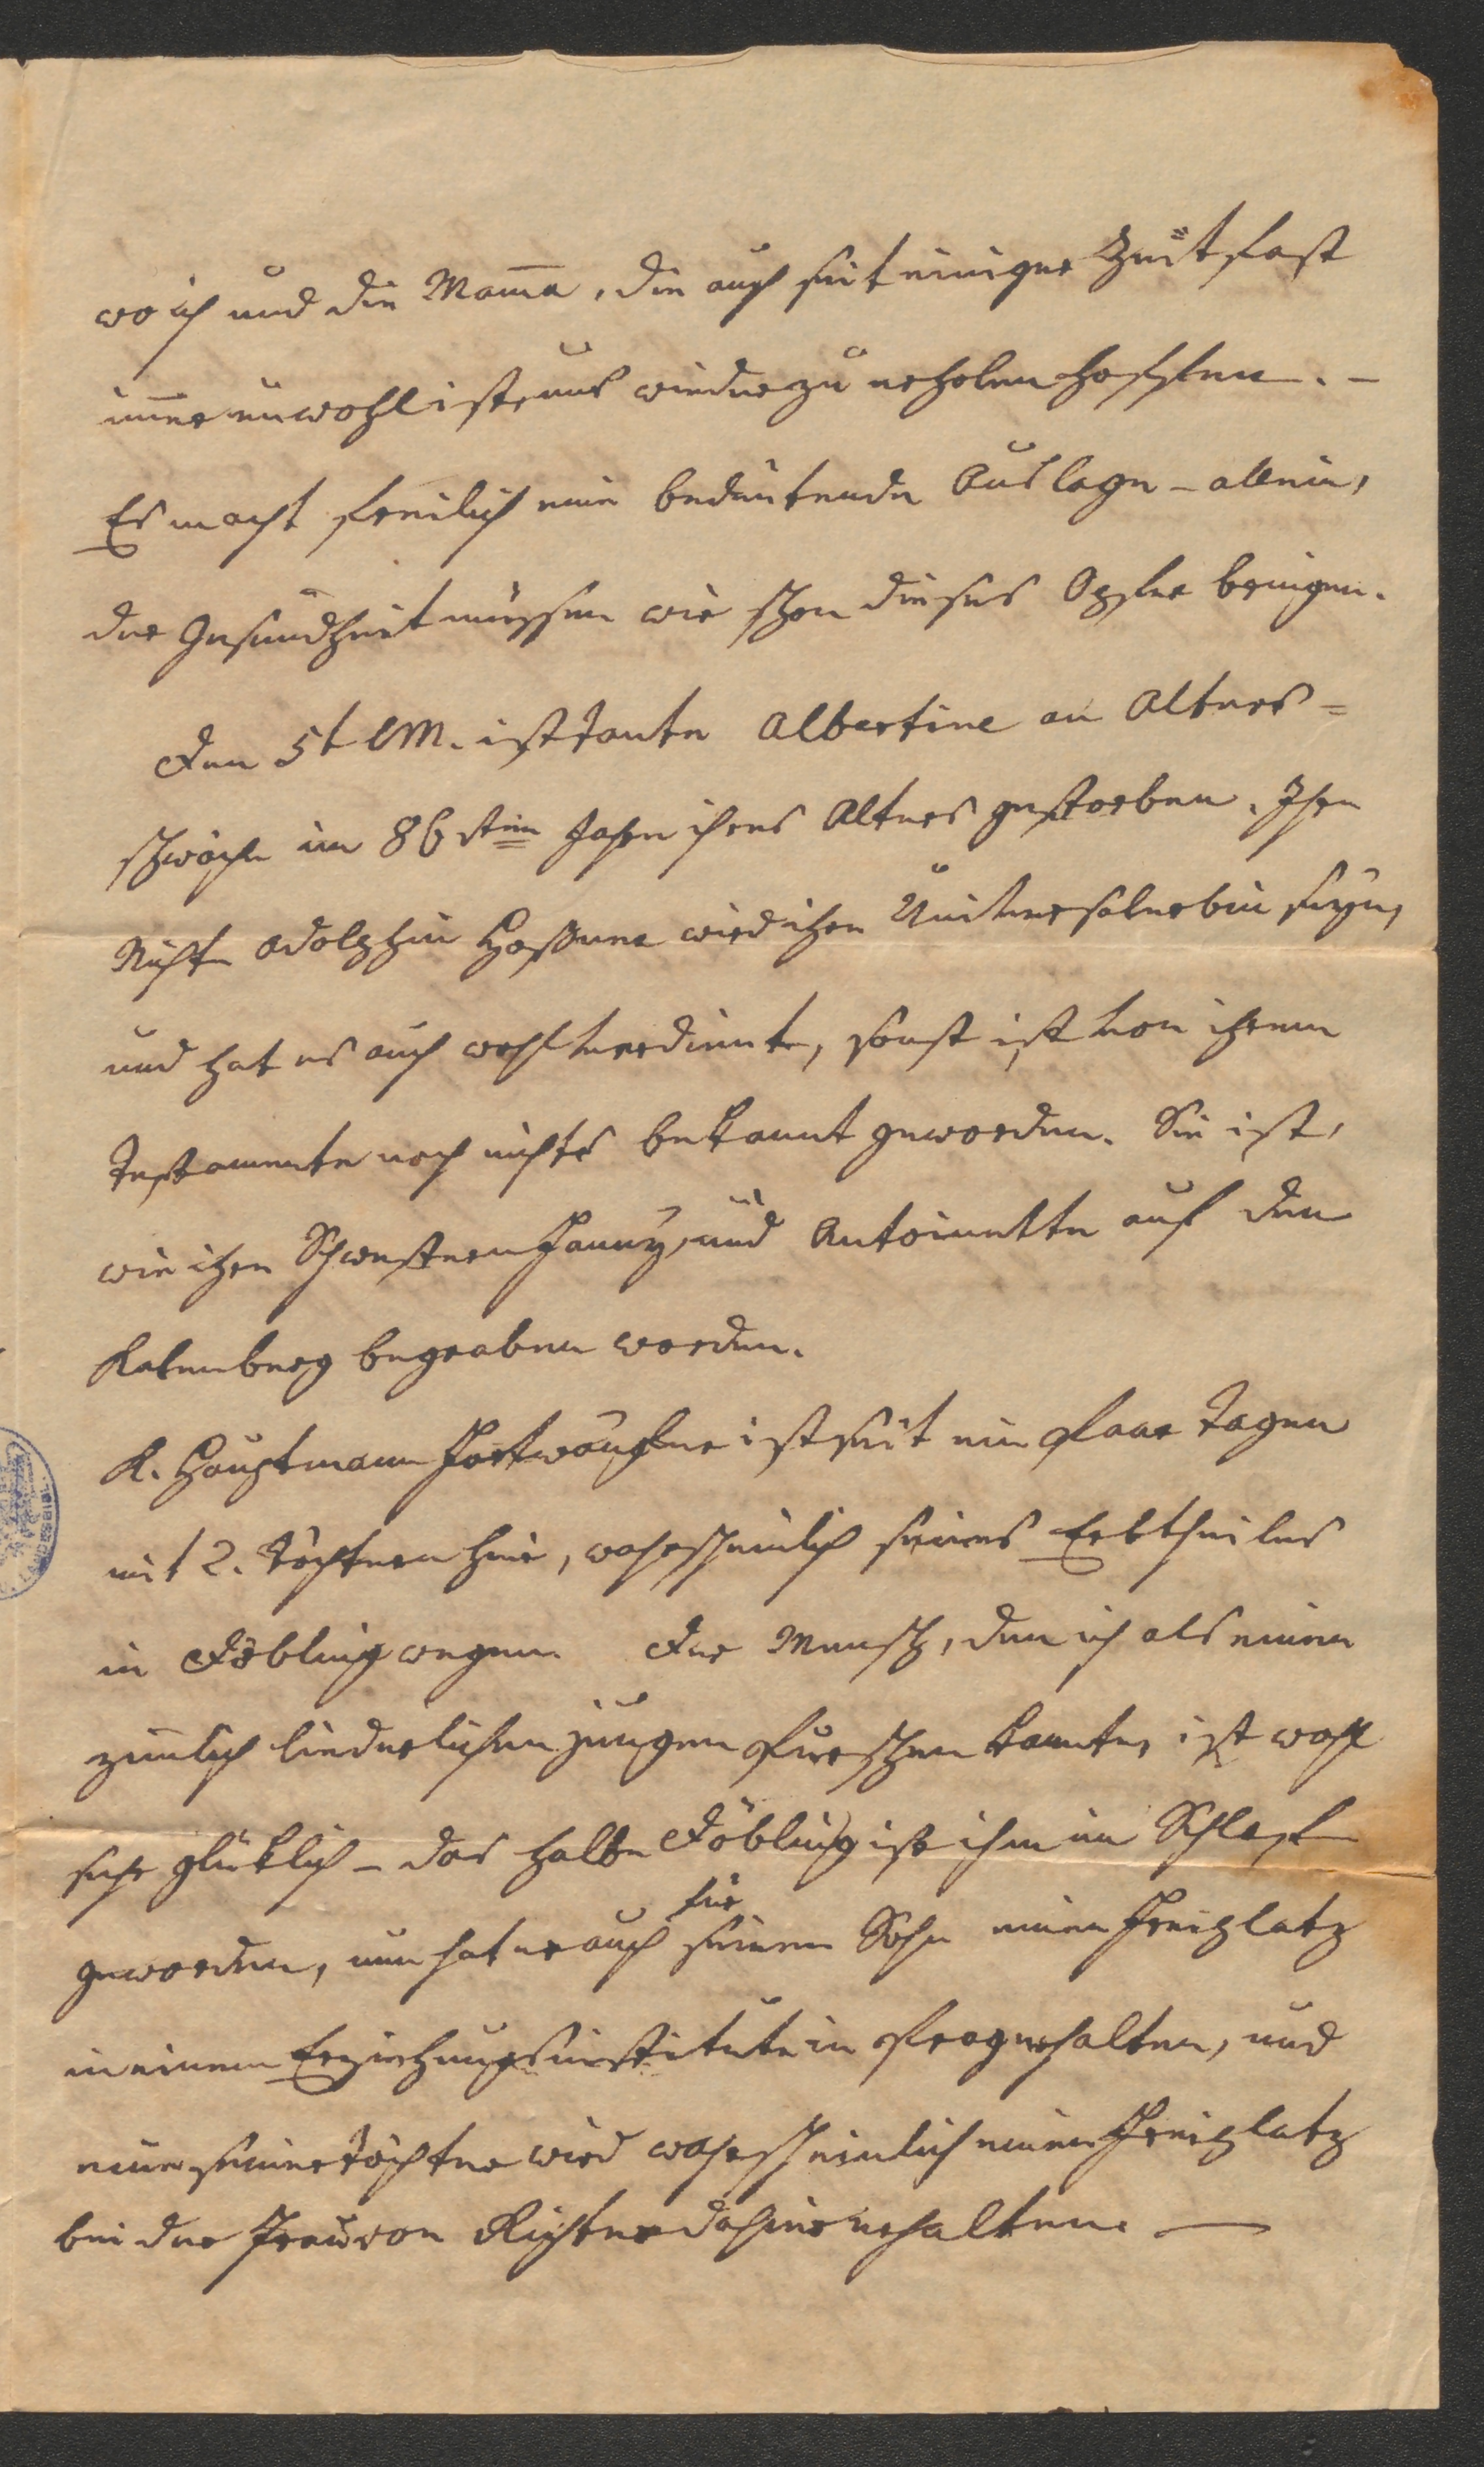 wo ich und die Mam̅a, die auch seit einiger Zeit fast
im̅er unwohl ist, uns wieder zu erholen hoffen. –
Es macht freilich eine bedeutende Auslage – allein,
der Gesundheit müssen wir schon dieses Opfer bringen.
Den 5t l M. ist Tante Albertine an Alters=
schwäche im 86sten Jahre ihres Alters gestorben. Ihre
Nichte Adolphin wird ihre Universalerbin seyn,
und hat es auch wohl verdient, sonst ist von ihrem
Testamente noch nichts bekannt geworden. Sie ist,
wie ihre Schwestern Fanny, und Antoinette auf den
Kalenberg begraben worden.
H. Hauptmann ist seit ein paar Tagen
mit 2. Töchtern hier, wahrscheinlich seines Erbtheiles
in Döbling wegen. Der Mensch, den ich als einen
zimlich liederlichen jungen Purschen kannte, ist wohl
sehr glüklich – das halbe Döbling ist ihm im Schlafe
geworden, nun hat er auch für seinen Sohn einen Freiplatz
in einem Erziehungsinstitute in Prag erhalten, und
eine seiner Töchter wird wahrscheinlich einen Freiplatz
bei der Frau von Richter dahier erhalten. —